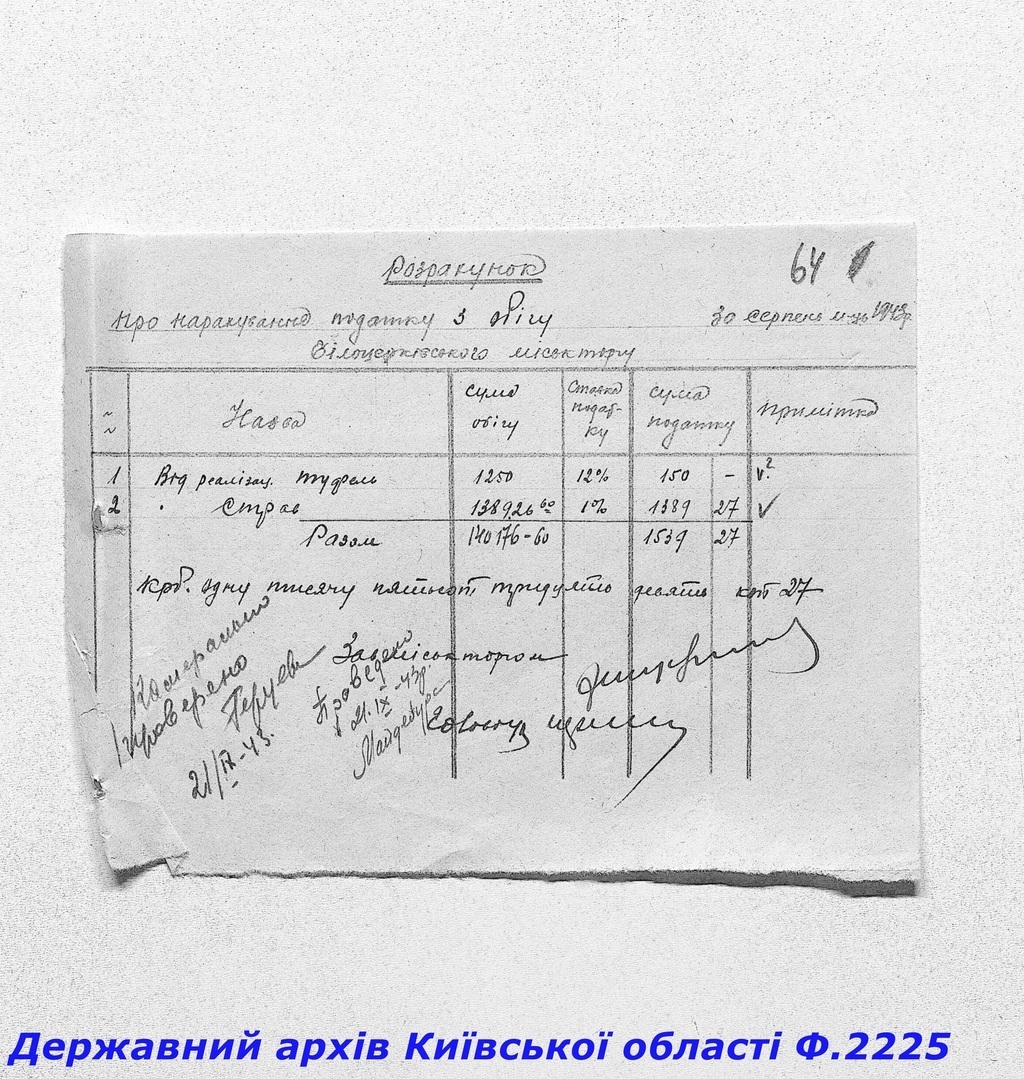 64
Розрахунок
Про нарахування податку з обігу за серпень м-ць 1943р.
Білоцерківського міськторгу
№№ Назва Сума обігу Ставка подат-ку Сума податку Примітка
1 Від реалізац. туфель 1250 12% 150 - v?
2 " Страв 138926 60 1% 1389 27 ✓
Разом 140176-60 1539 27
Крб. одну тисячу пятьсот тридцять девять коп 27
Завміськторгом
Камерально
проверено
21/IX-43.
Проведено
21.IX-43р.
Державний архів Київської області Ф.2225